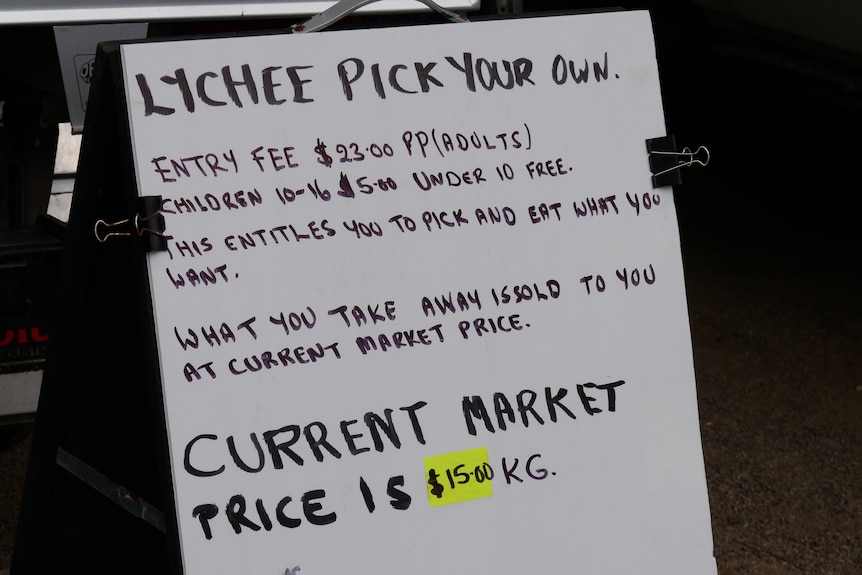 LYCHEE PICK YOUR OWN.
ENTRY FEE $23.00 PP(ADULTS)
CHILDREN 10-16 $5.00 UNDER 10 FREE.
THIS ENTITLES YOU TO PICK AND EAT WHAT YOU
WANT.
WHAT YOU TAKE AWAY IS SOLD TO YOU
AT CURRENT MARKET PRICE.
CURRENT MARKET
PRICE IS $15.00 KG.